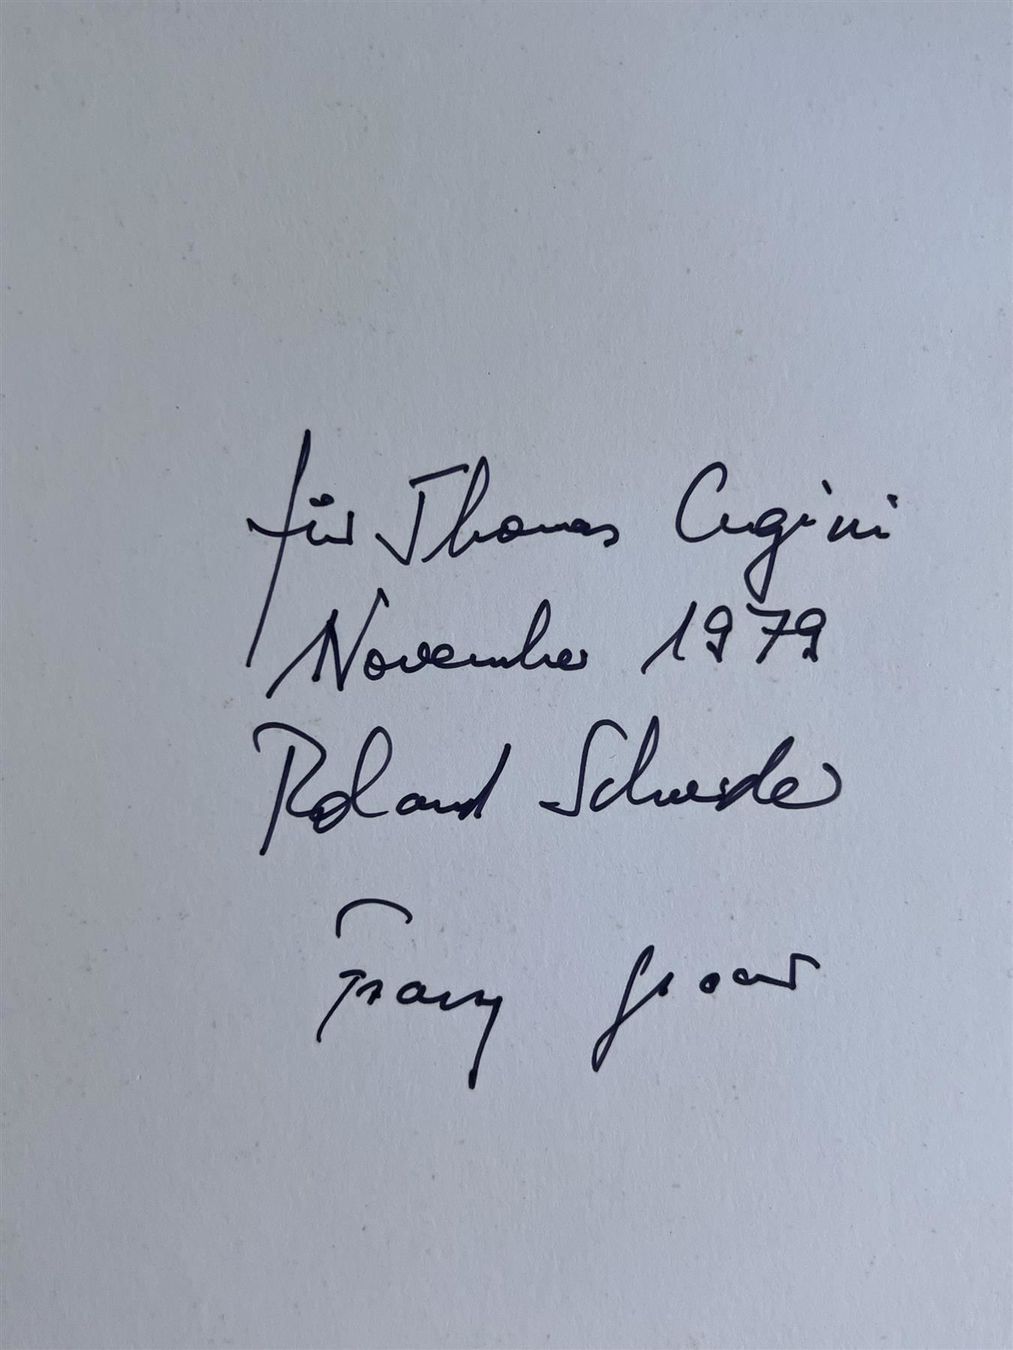 für Thomas Cugini
November 1979
Roland Schneider
Franz